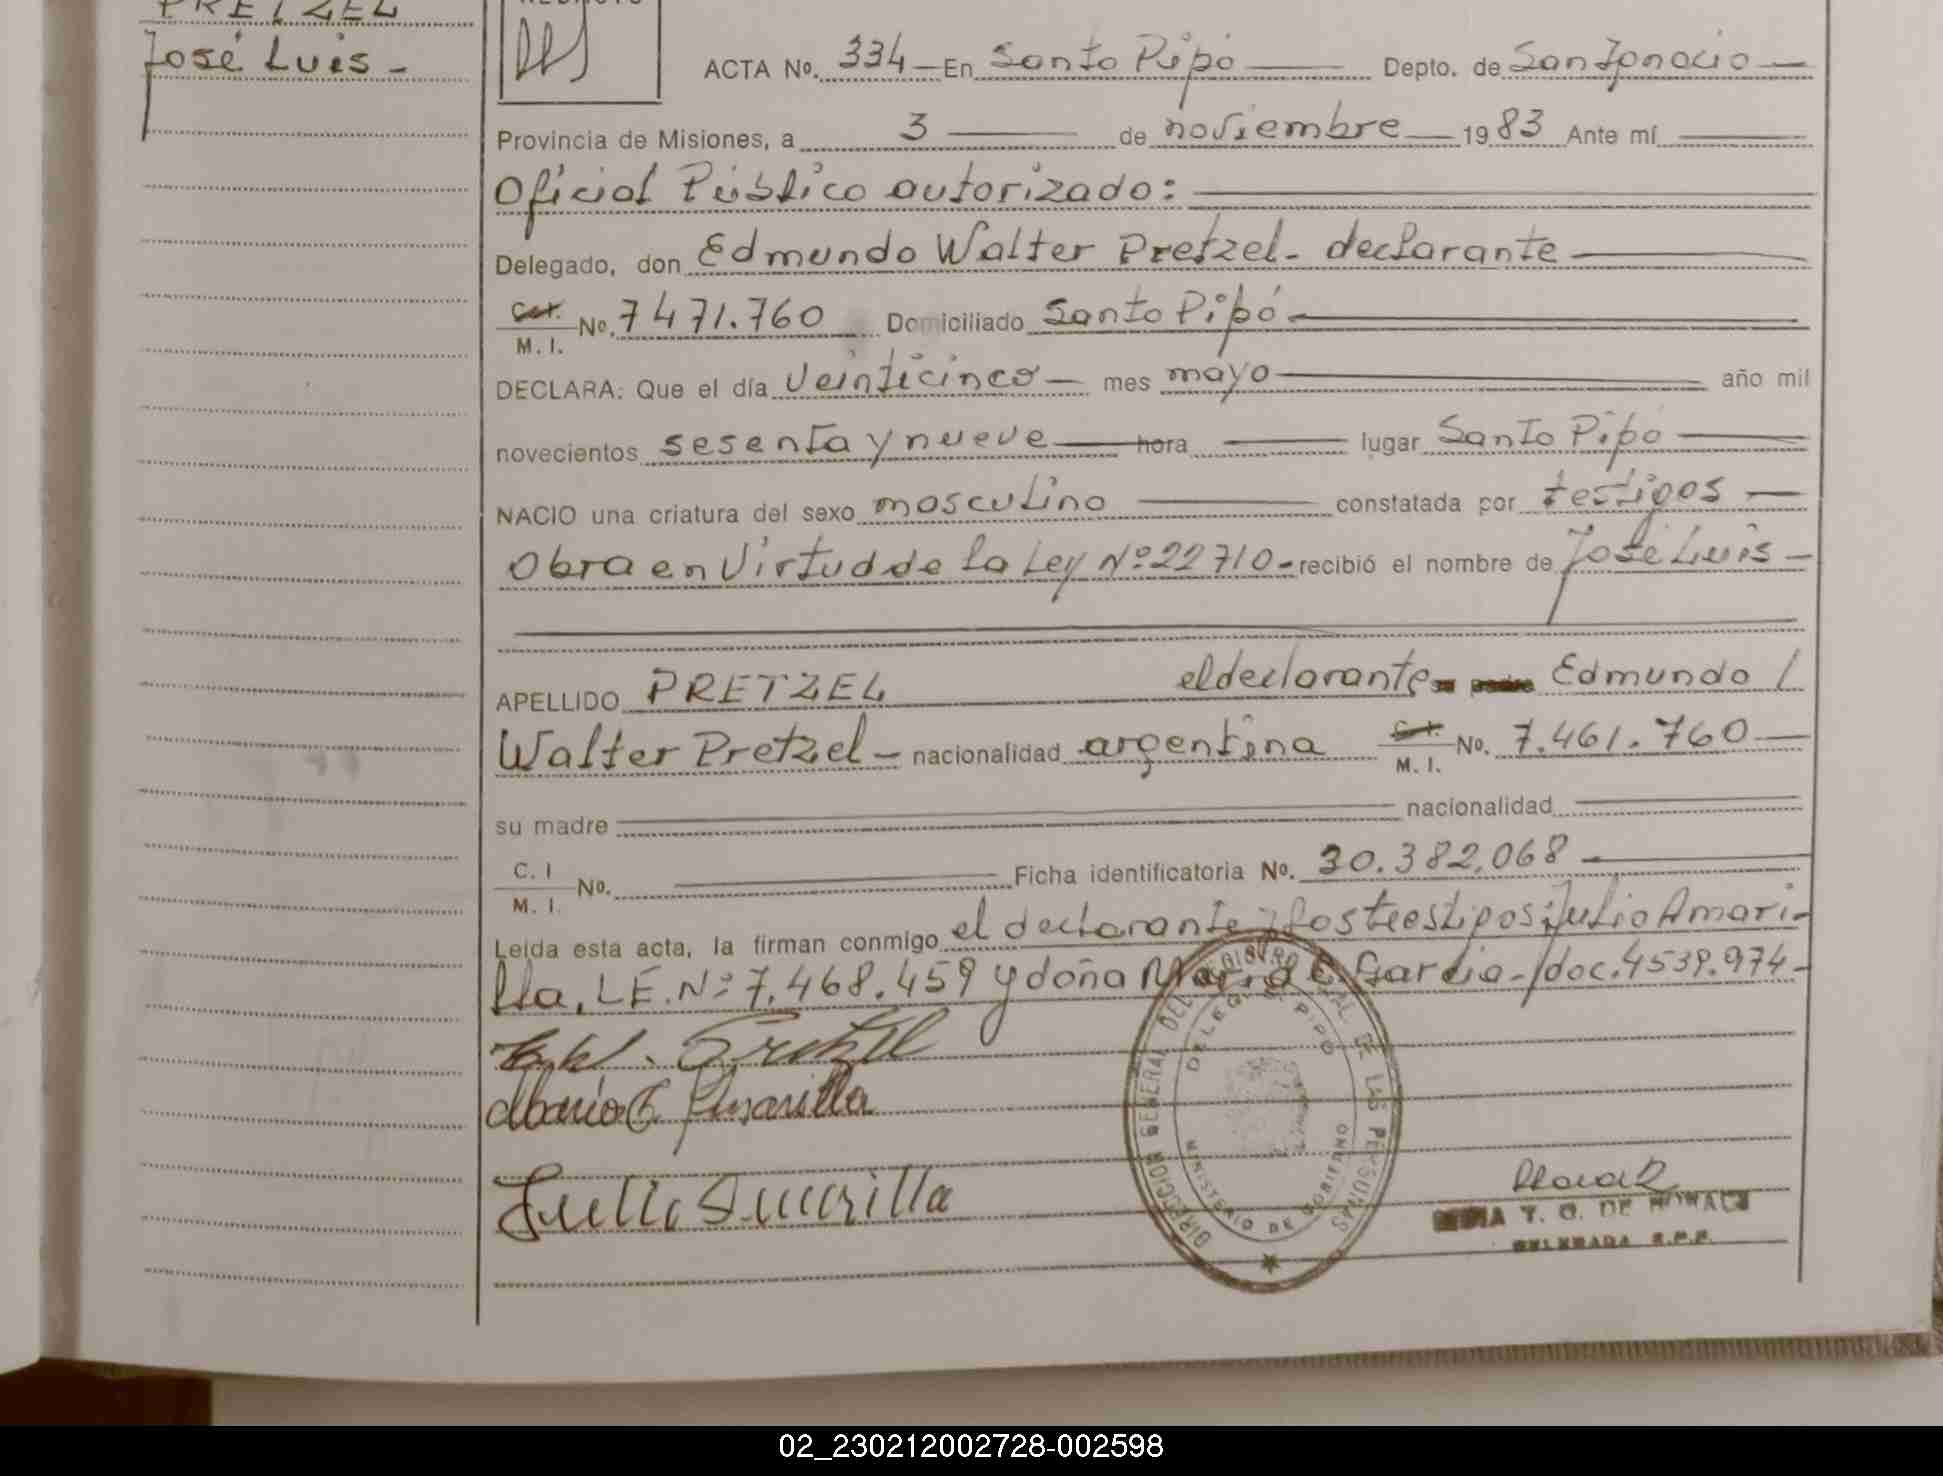 PRETZEL
José Luis -
ACTA Nº. 334 - En Santo Pipó Depto. de San Ignacio -
Provincia de Misiones, a 3 de noviembre 1983 Ante mí
Oficial Público autorizado:
Delegado, don Edmundo Walter Pretzel - declarante
C.I. M. I. Nº. 7471.760 Domiciliado Santo Pipó -
DECLARA: Que el día veinticinco - mes mayo año mil
novecientos sesenta y nueve hora lugar Santo Pipó
NACIO una criatura del sexo masculino constatada por testigos -
Obra en Virtud de la Ley Nº 22710 - recibió el nombre de José Luis -
APELLIDO PRETZEL el declarante Edmundo /
Walter Pretzel - nacionalidad argentina C.I. M. I. Nº. 7.461.760 -
su madre nacionalidad
C. I M. I. Nº. Ficha identificatoria Nº. 30.382,068 -
Leída esta acta, la firman conmigo el declarante y los testigos: Julio Amari-
lla, L.E. Nº 7.468.459 y doña María E. García - /doc. 4539.974 -
Julio Amarilla
DIRECCION GENERAL DEL REGISTRO DE LAS PERSONAS
DELEG. PIPO
MINISTERIO DE GOBIERNO
T. G. DE
02_230212002728-002598